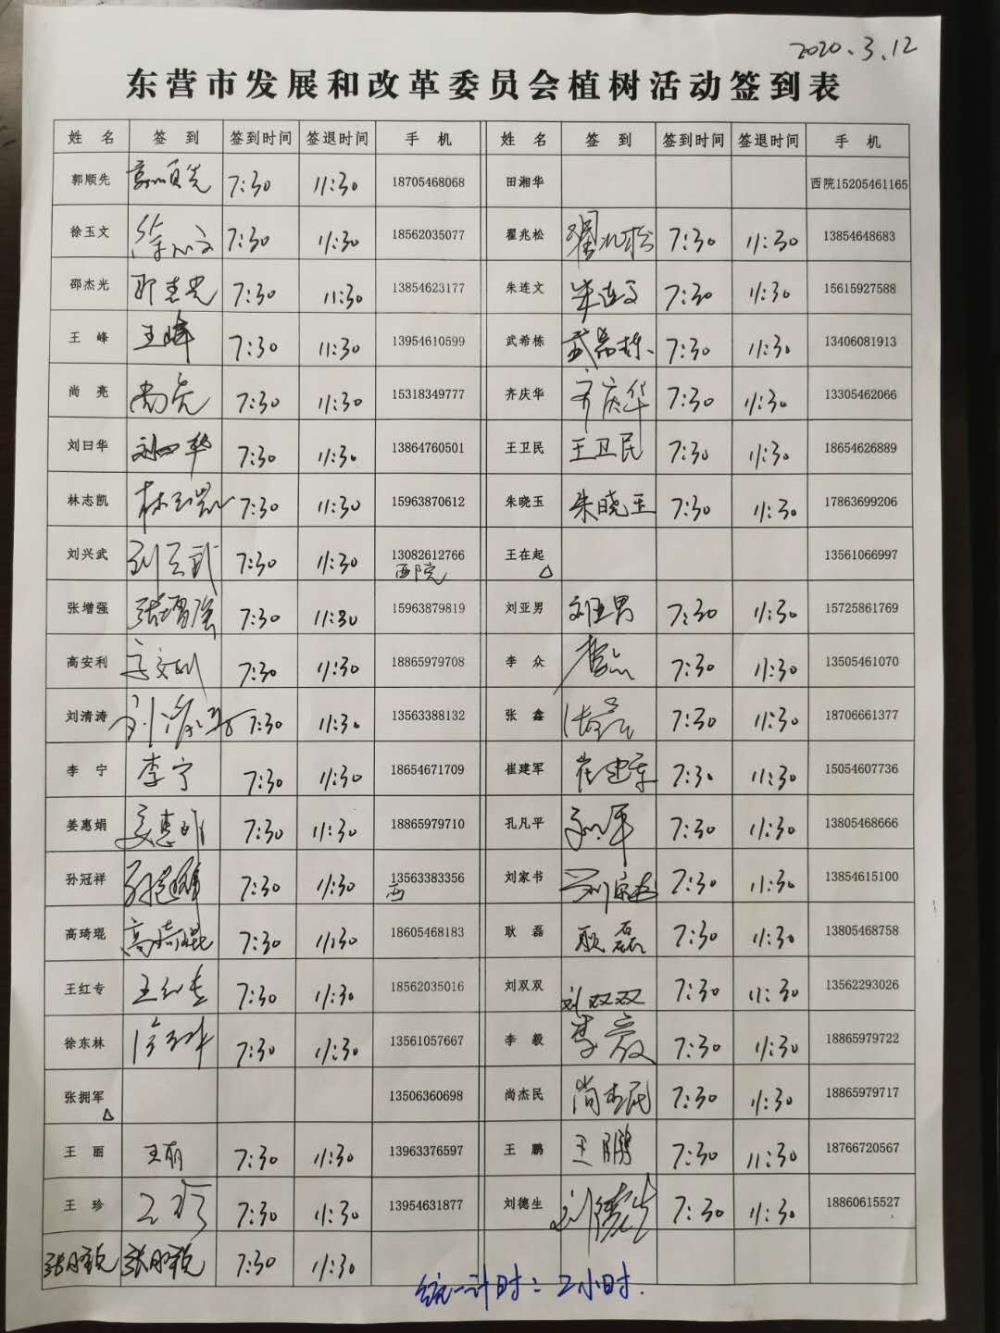 2020.3.12
东营市发展和改革委员会植树活动签到表
姓 名 签 到 签到时间 签退时间 手 机 姓 名 签 到 签到时间 签退时间 手 机
郭顺先 郭顺先 7:30 11:30 18705468068 田湘华 西院15205461165
徐玉文 徐玉文 7:30 11:30 18562035077 翟兆松 翟兆松 7:30 11:30 13854648683
邵杰光 邵杰光 7:30 11:30 13854623177 朱连文 朱连文 7:30 11:30 15615927588
王 峰 王峰 7:30 11:30 13954610599 武希栋 武希栋 7:30 11:30 13406081913
尚 亮 尚亮 7:30 11:30 15318349777 齐庆华 齐庆华 7:30 11:30 13305462066
刘日华 刘日华 7:30 11:30 13864760501 王卫民 王卫民 7:30 11:30 18654626889
林志凯 林志凯 7:30 11:30 15963870612 朱晓玉 朱晓玉 7:30 11:30 17863699206
刘兴武 刘兴武 7:30 11:30 13082612766 西院 王在起 △ 13561066997
张增强 张增强 7:30 11:30 15963879819 刘亚男 刘亚男 7:30 11:30 15725861769
高安利 高安利 7:30 11:30 18865979708 李 众 李众 7:30 11:30 13505461070
刘清涛 刘清涛 7:30 11:30 13563388132 张 鑫 张鑫 7:30 11:30 18706661377
李 宁 李宁 7:30 11:30 18654671709 崔建军 崔建军 7:30 11:30 15054607736
姜惠娟 姜惠娟 7:30 11:30 18865979710 孔凡平 7:30 11:30 13805468666
孙冠祥 7:30 11:30 13563383356 西 刘家书 刘家书 7:30 11:30 13854615100
高琦琨 高琦琨 7:30 11:30 18605468183 耿 磊 耿磊 7:30 11:30 13805468758
王红专 王红专 7:30 11:30 18562035016 刘双双 刘双双 7:30 11:30 13562293026
徐东林 徐东林 7:30 11:30 13561057667 李 毅 李毅 7:30 11:30 18865979722
张拥军 △ 13506360698 尚杰民 尚杰民 7:30 11:30 18865979717
王 丽 王丽 7:30 11:30 13963376597 王 鹏 王鹏 7:30 11:30 18766720567
王 珍 王珍 7:30 11:30 13954631877 刘德生 刘德生 7:30 11:30 18860615527
7:30 11:30
统一计时：2小时.